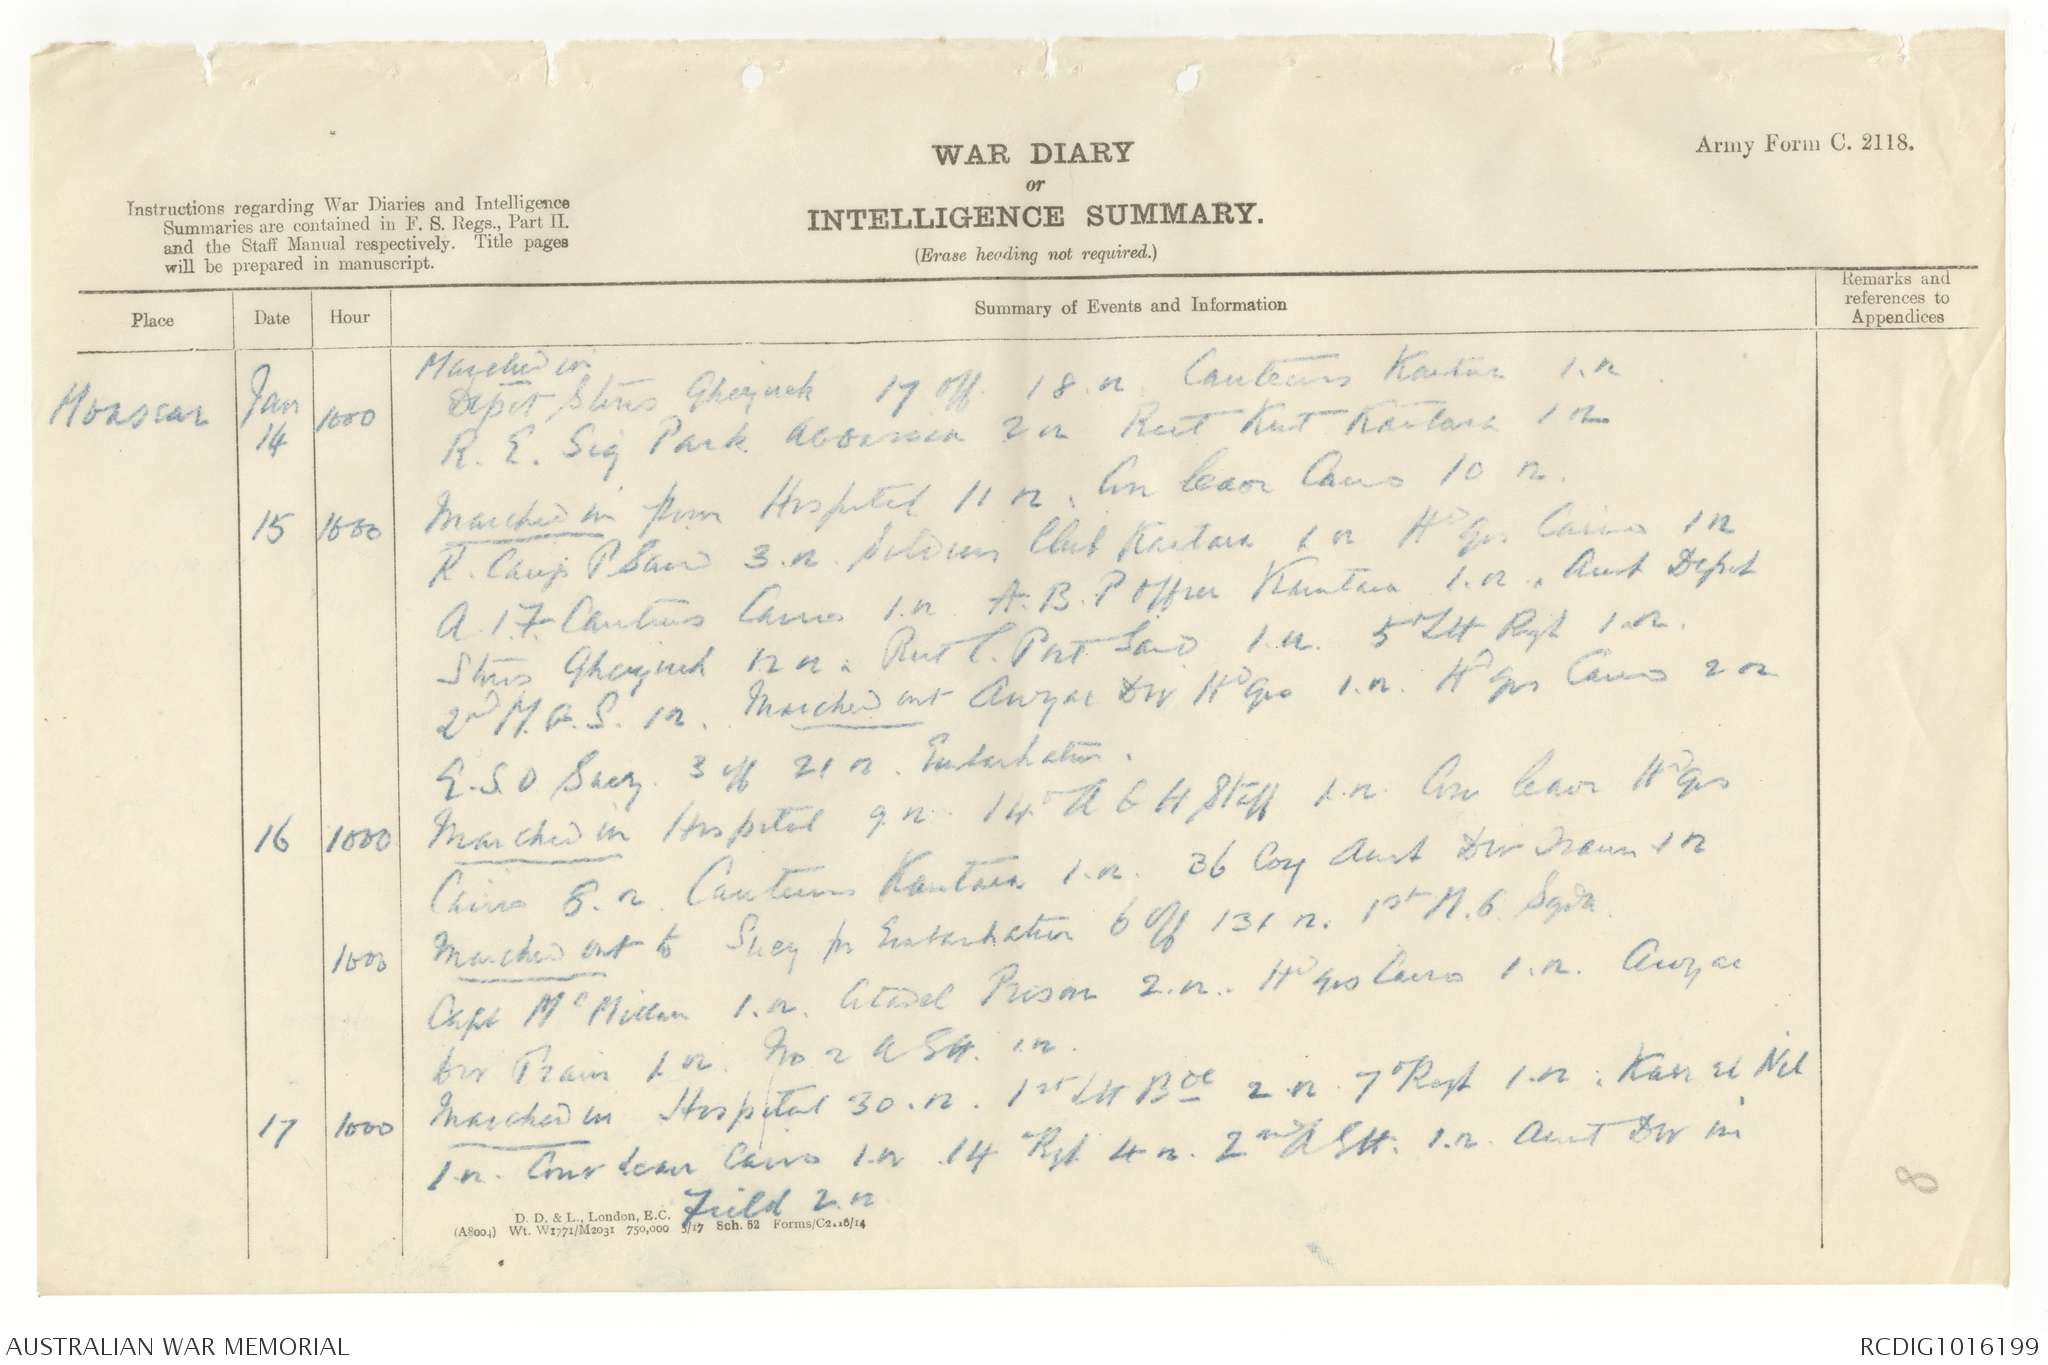 Army Form C. 2118.
WAR DIARY
or
INTELLIGENCE SUMMARY.
(Erase heading not required.)
Instructions regarding War Diaries and Intelligence
Summaries are contained in F. S. Regs., Part II.
and the Staff Manual respectively. Title pages
will be prepared in manuscript.
Place Date Hour Summary of Events and Information Remarks and
references to
Appendices
Marched in
Moascar Jan 14 1000 Depot Stores 17 off. 18. n. Canteens Kantara 1. n.
R. E. Sig Park Abbassia 2 n Rest Kantara 1 n
15 1000 Marched in from Hospital 11 n. On leave Cairo 10 n.
R. Camp P Said 3. n. Soldiers Club Kantara 1 n Hd Qrs Cairo 1 n
A. I. F. Canteens Cairo 1. n. A. B. P Officer Kantara 1. n. Aust Depot
Stores 12 n. Rest C. Port Said 1. n. 5th LH Regt 1. n.
2nd M. G. S. 1 n. Marched out Anzac Div Hd Qrs 1. n. Hd Qrs Cairo 2 n
E. S. O Suez. 3 off 21 n. Embarkation.
16 1000 Marched in Hospital 9 n. 14th A G H Staff 1. n. On leave Hd Qrs
Cairo 8. n. Canteens Kantara 1. n. 36 Coy Aust Div Train 1 n
1000 Marched out to Suez for Embarkation 6 off 131 n. 1st M. G. Sqdn.
Capt McMillan 1. n. Citadel Prison 2. n. Hd Qrs Cairo 1. n. Anzac
Div Train 1. n. No 2 A S H. 1. n.
17 1000 Marched in Hospital 30. n. 1st LH Bde 2. n. 7th Regt 1. n. Kasr el Nil
1. n. leave Cairo 1. n. 14th Rgt 4 n. 2nd A S H. 1. n. Aust Div in
Field 2. n
D. D. & L., London, E.C.
(A8004) Wt. W1771/M2031 750,000 5/17 Sch. 52 Forms/C2118/14
8
AUSTRALIAN WAR MEMORIAL
RCDIG1016199